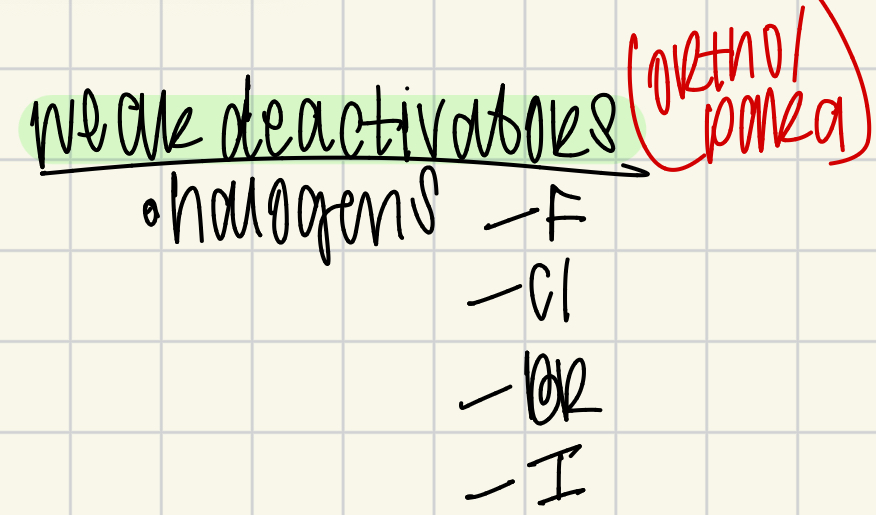 weak deactivators (ortho/
para)
• halogens -F
-Cl
-BR
-I